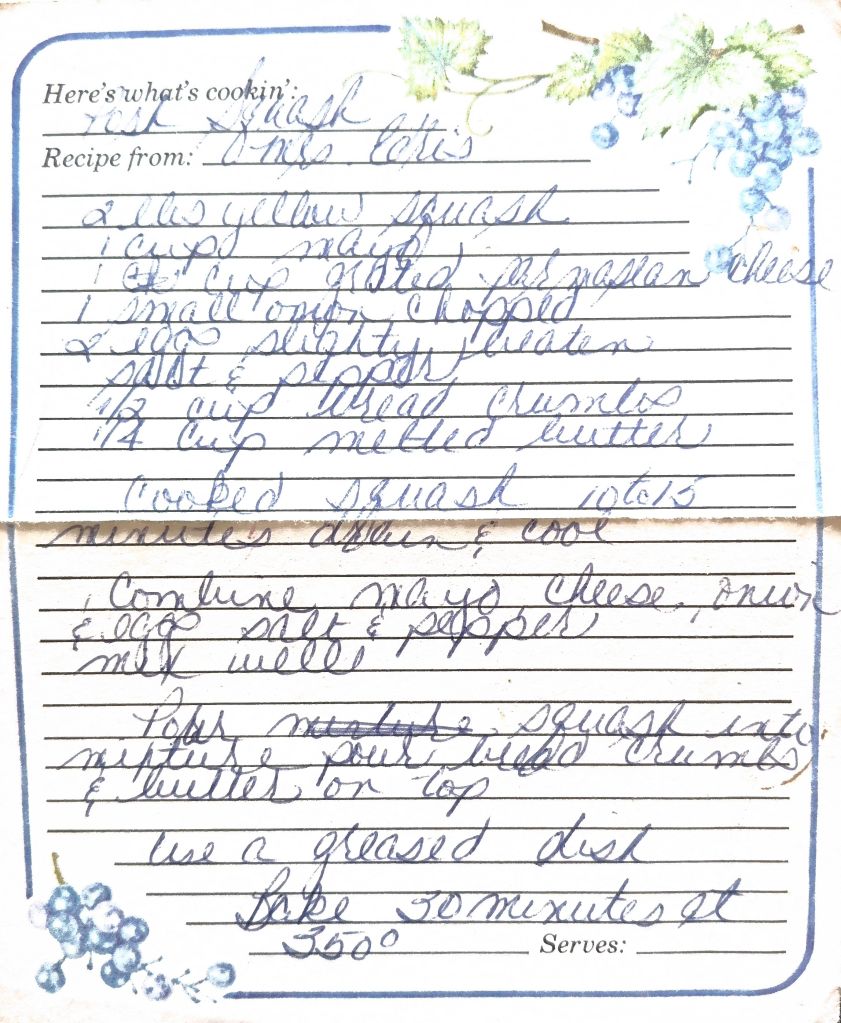 Here's what's cookin':
Squash
Recipe from: Mrs.
2 lbs yellow squash
1 cup mayo
1 cup grated parmasean cheese
1 small onion chopped
2 eggs slighty beaten
salt & pepper
1/2 cup bread crumbs
1/4 cup melted butter
Cooked squash 10 to 15
minutes drain & cool
Combine mayo, cheese, onion
& eggs salt & pepper
mix well
Pour mixture squash into
mixture pour bread crumbs
& butter on top
use a greased dish
Bake 30 minutes at
350° Serves: